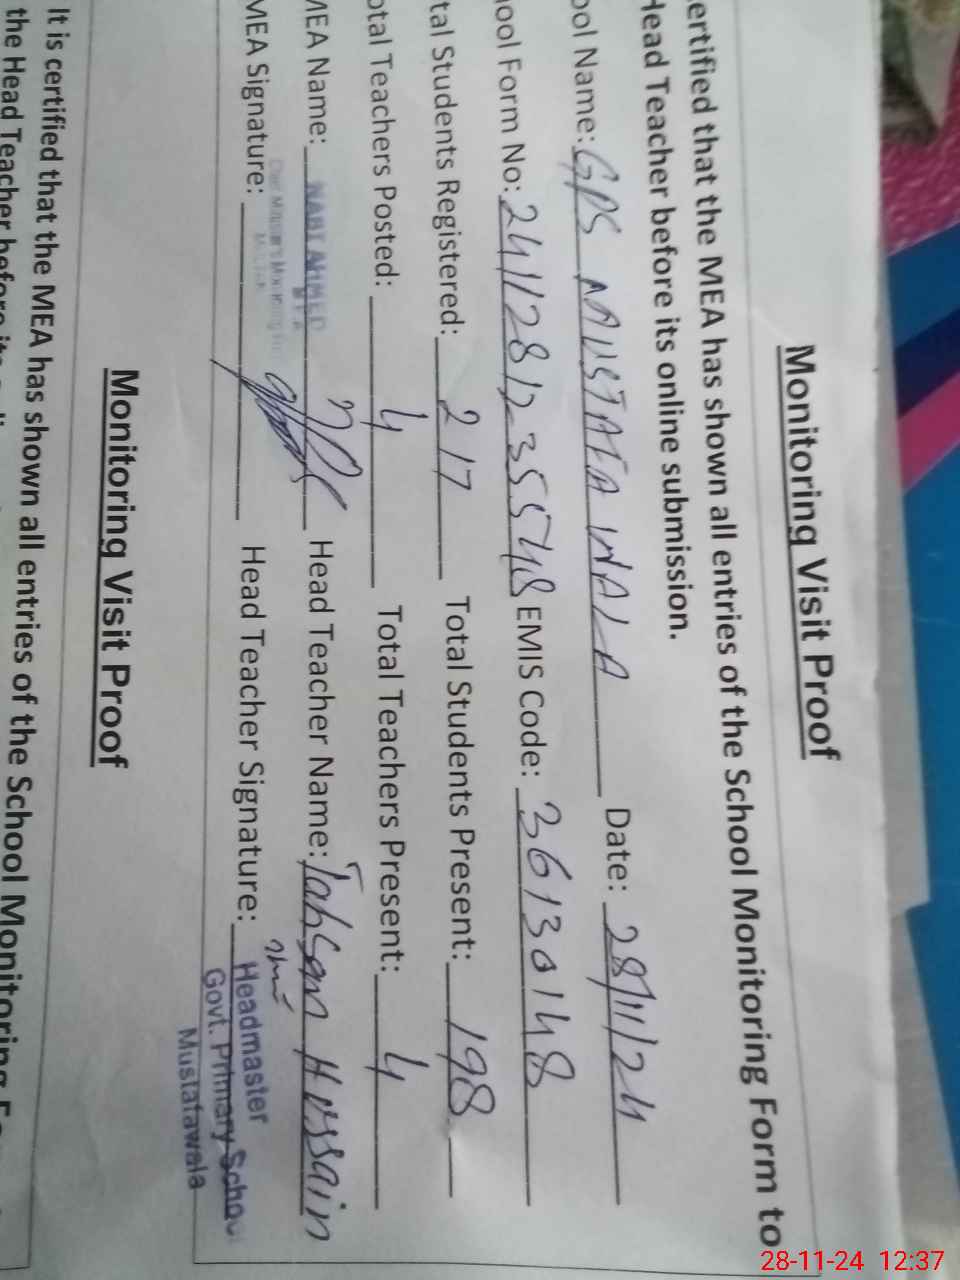 Monitoring Visit Proof
ertified that the MEA has shown all entries of the School Monitoring Form to
Head Teacher before its online submission.
ool Name: GPS MUSTAFA WALA Date: 28/11/24
ool Form No: 2411281235548 EMIS Code: 36130148
tal Students Registered: 217 Total Students Present: 198
otal Teachers Posted: 4 Total Teachers Present: 4
MEA Name: NABI AHMED Head Teacher Name: Tahsen Hussain
MEA Signature: Head Teacher Signature:
Headmaster
Govt. Primary School
Mustafawala
Monitoring Visit Proof
It is certified that the MEA has shown all entries of the School Monitoring Fo
the Head Teacher before its
28-11-24 12:37